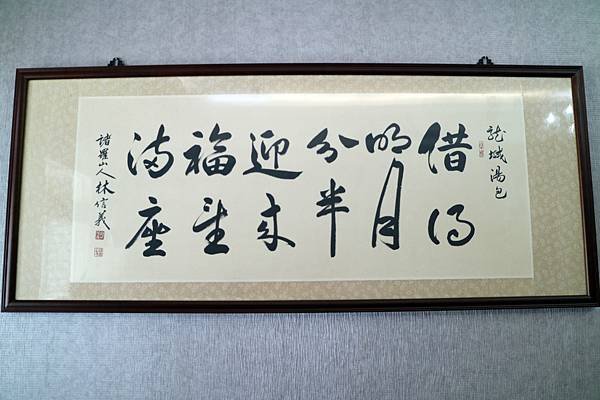 龍城湯包
借得
明月
分半
迎來
福星
滿座
諸羅山人林信義